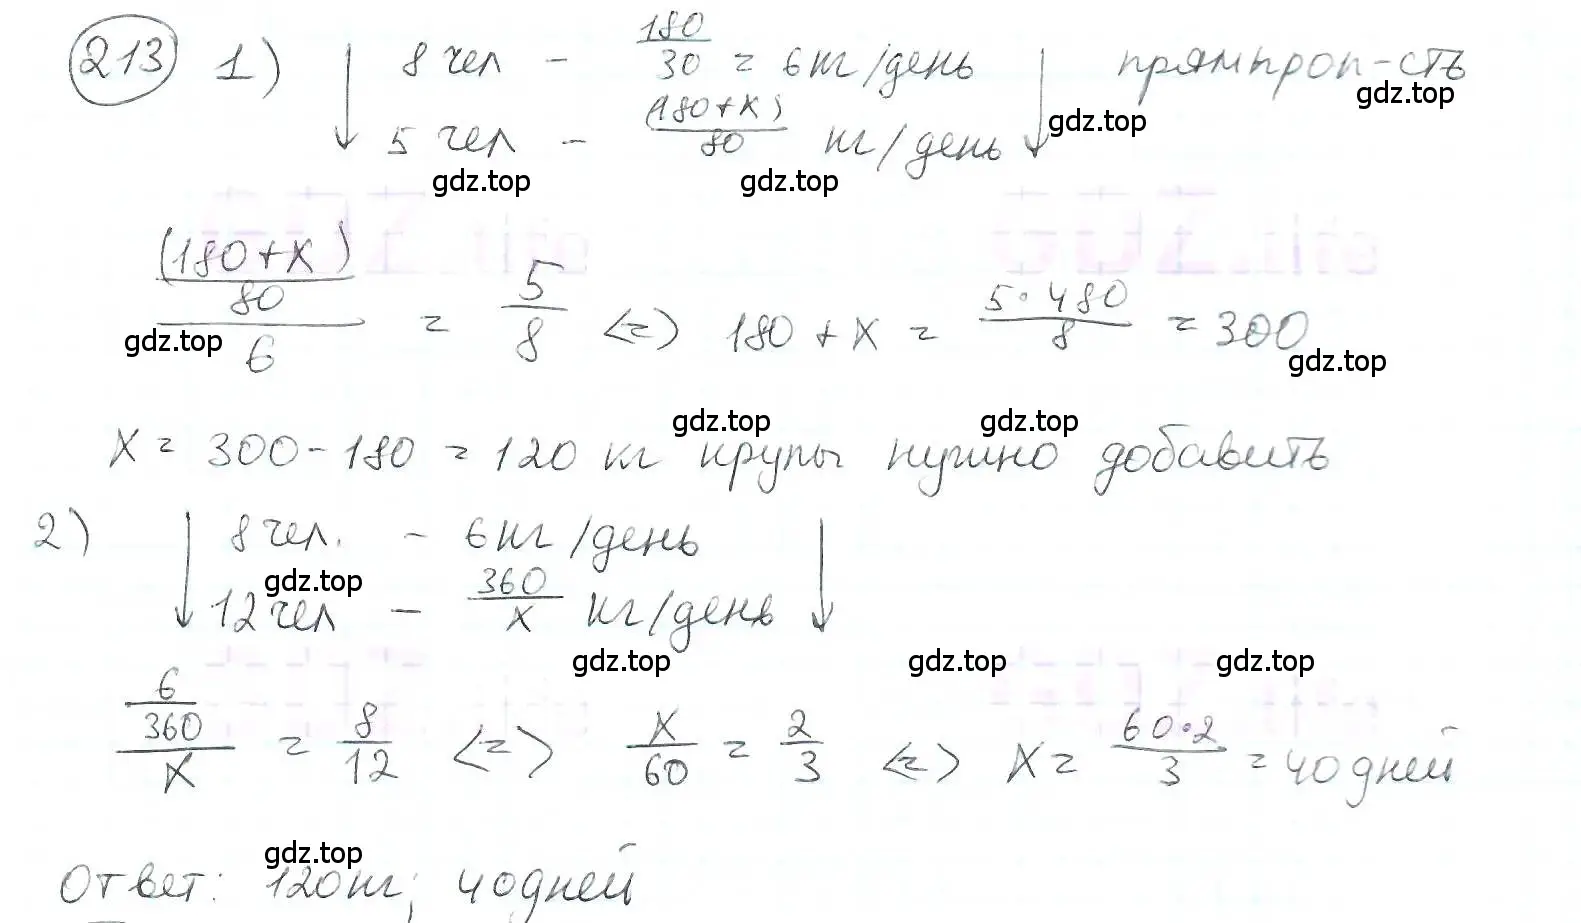 213 1) ↓ 8 чел - 180/30 = 6 кг/день ↓ прямпроп-сть
gdz.top
5 чел - (180+x)/80 кг/день
gdz.top
gdz.top gdz.top
((180+x)/80)/6 = 5/8 <=> 180 + x = 5·480/8 = 300
gdz.top gdz.top
gdz.top gdz.top
x = 300-180 = 120 кг крупы нужно добавить
2) ↓ 8 чел. - 6 кг/день ↓
gdz.top
12 чел - 360/x кг/день
gdz.top gdz.top gdz.top
6/(360/x) = 8/12 <=> x/60 = 2/3 <=> x = 60·2/3 = 40 дней
gdz.top
Ответ: 120 кг; 40 дней